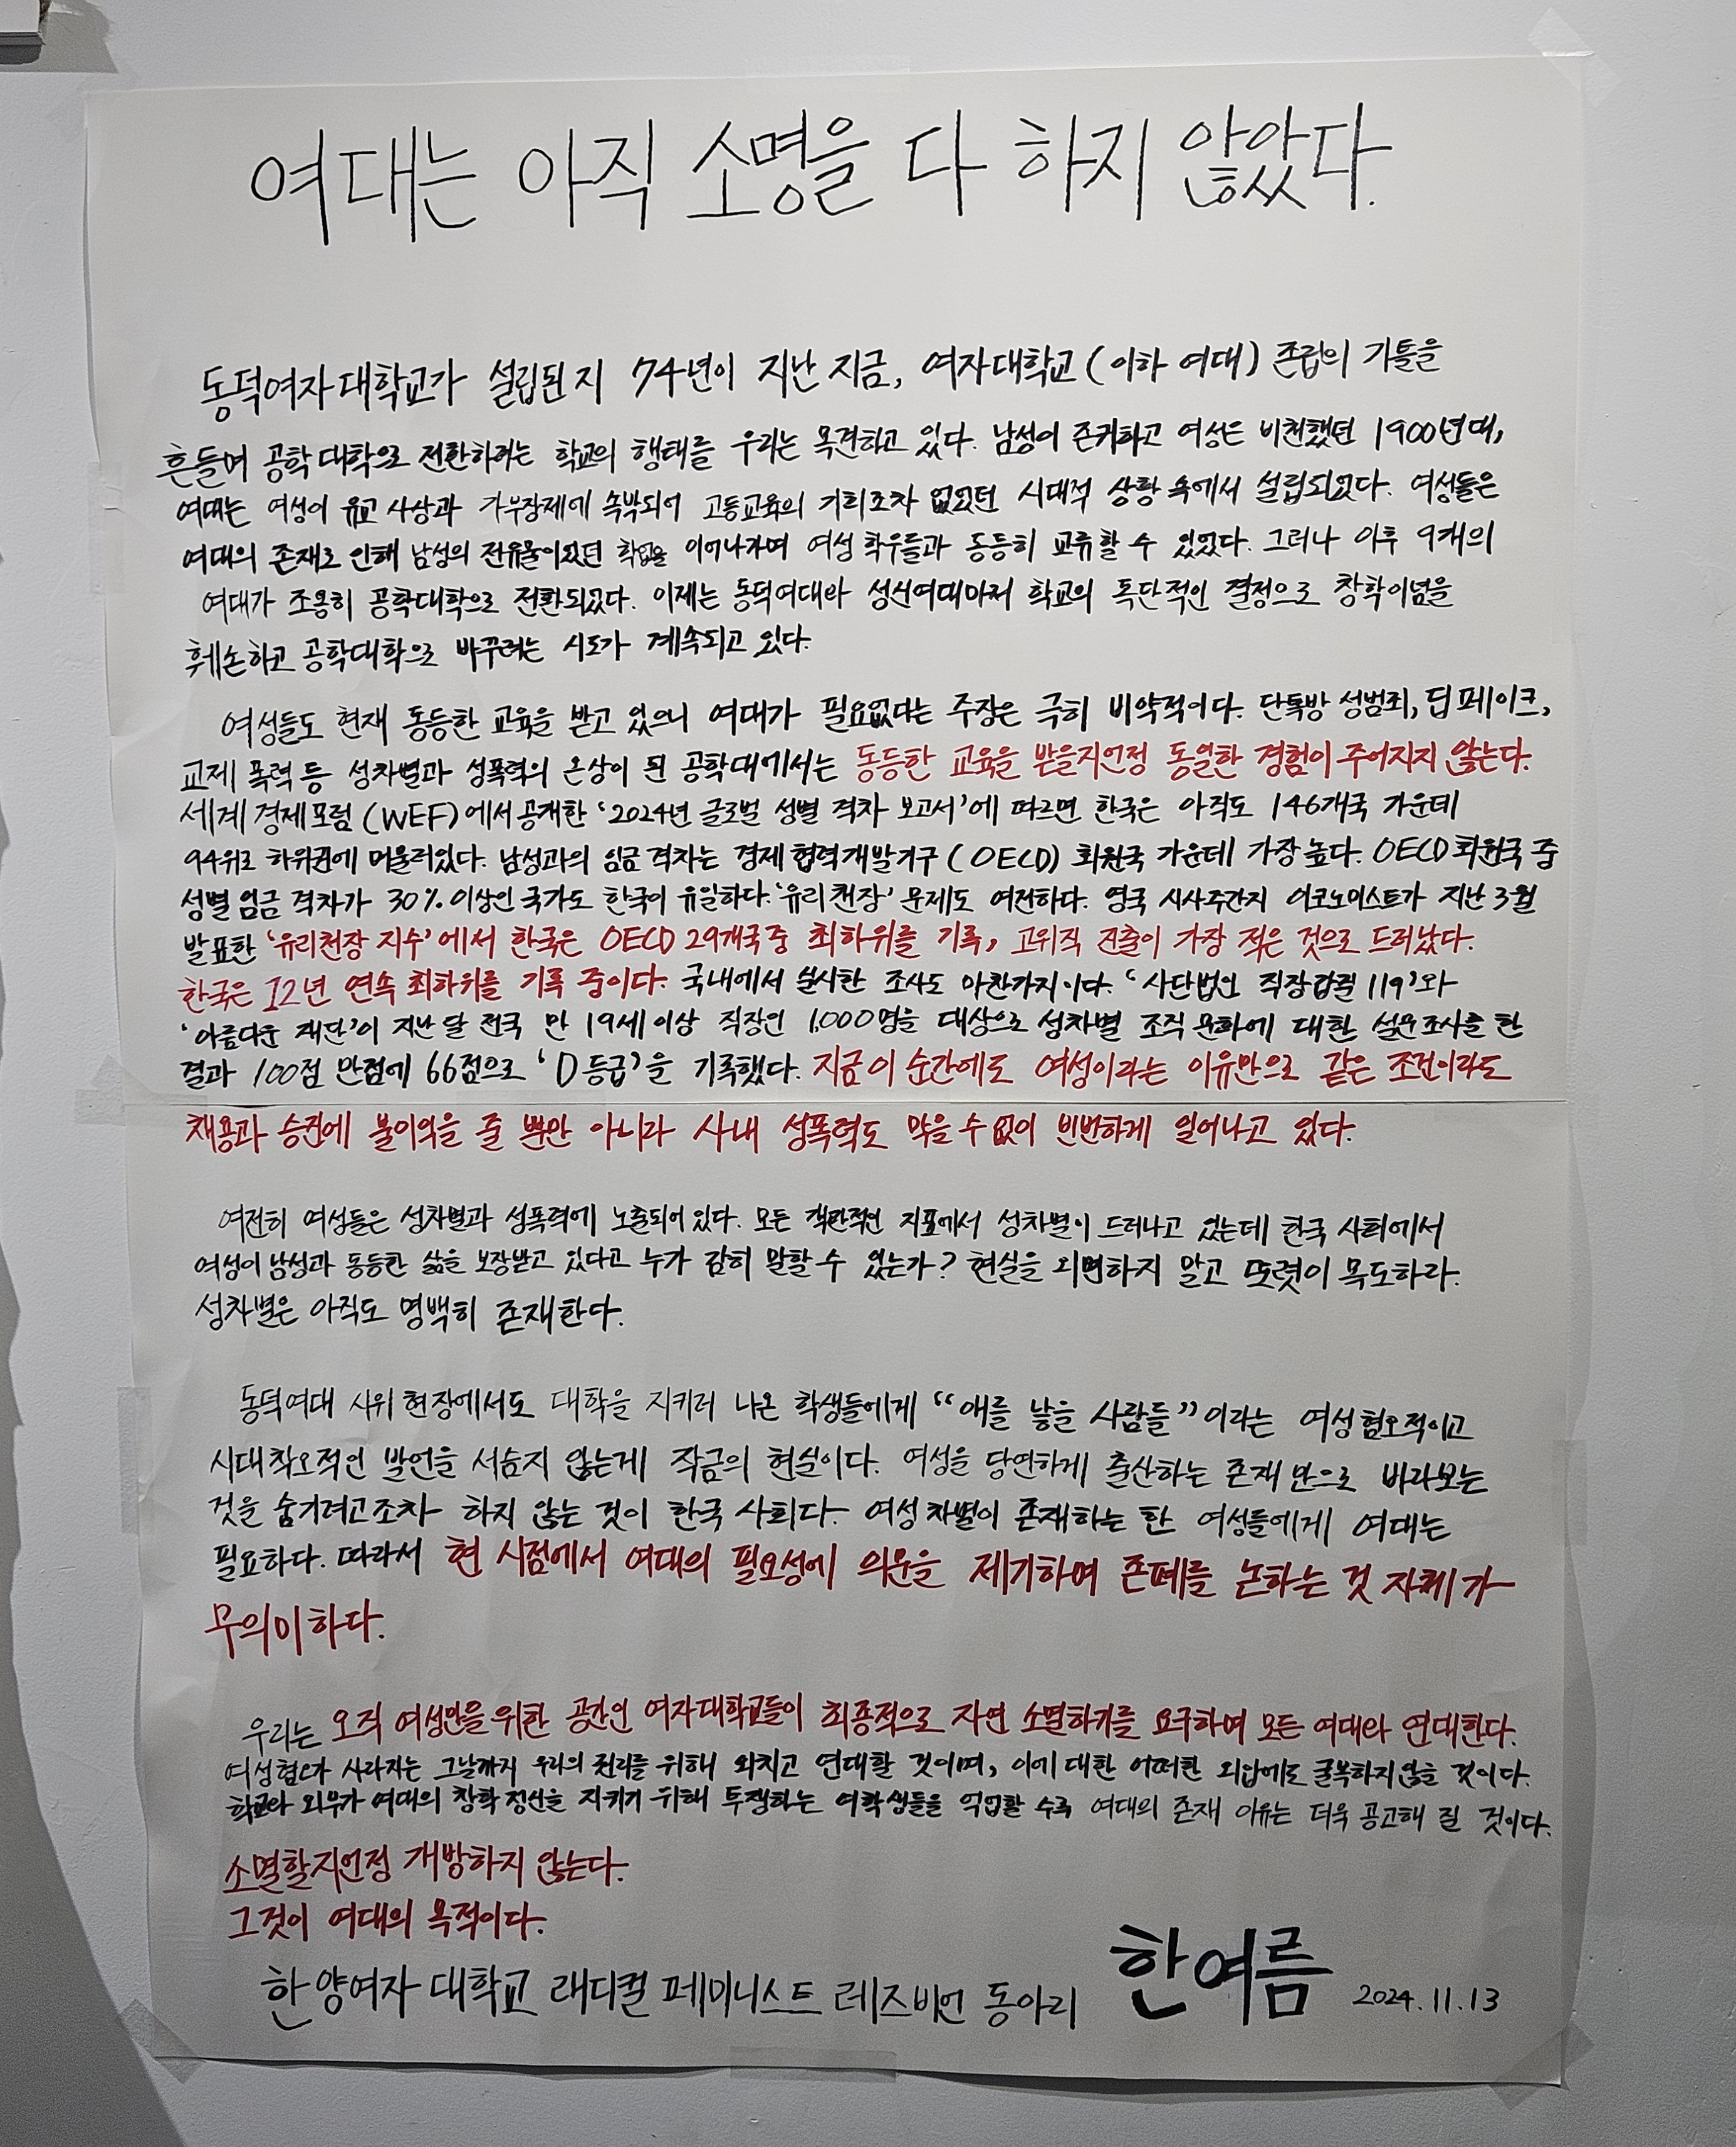 여대는 아직 소명을 다 하지 않았다.
동덕여자대학교가 설립된지 74년이 지난 지금, 여자대학교(이하 여대) 존립의 가틀을
흔들며 공학대학으로 전환하려는 학교의 행태를 우리는 목견하고 있다. 남성이 존귀하고 여성은 비천했던 1900년대,
여대는 여성이 유교 사상과 가부장제에 속박되어 고등교육의 기회조차 없었던 시대적 상황 속에서 설립되었다. 여성들은
여대의 존재로 인해 남성의 전유물이었던 학업을 이어나가며 여성 학우들과 동등히 교류할 수 있었다. 그러나 이후 9개의
여대가 조용히 공학대학으로 전환되었다. 이제는 동덕여대와 성신여대마저 학교의 독단적인 결정으로 창학이념을
훼손하고 공학대학으로 바꾸려는 시도가 계속되고 있다.
여성들도 현재 동등한 교육을 받고 있으니 여대가 필요없다는 주장은 극히 비약적이다. 단톡방 성범죄, 딥페이크,
교제 폭력 등 성차별과 성폭력의 온상이 된 공학대에서는 동등한 교육을 받을지언정 동일한 경험이 주어지지 않는다.
세계경제포럼(WEF)에서 공개한 '2024년 글로벌 성별 격차 보고서'에 따르면 한국은 아직도 146개국 가운데
94위로 하위권에 머물러있다. 남성과의 임금 격차는 경제협력개발기구(OECD) 회원국 가운데 가장 높다. OECD 회원국 중
성별 임금 격차가 30% 이상인 국가도 한국이 유일하다. '유리천장' 문제도 여전하다. 영국 시사주간지 이코노미스트가 지난 3월
발표한 '유리천장 지수'에서 한국은 OECD 29개국 중 최하위를 기록, 고위직 진출이 가장 적은 것으로 드러났다.
한국은 12년 연속 최하위를 기록 중이다. 국내에서 실시한 조사도 마찬가지이다. '사단법인 직장갑질 119'와
'아름다운 재단'이 지난달 전국 만 19세 이상 직장인 1,000명을 대상으로 성차별 조직 문화에 대한 설문조사를 한
결과 100점 만점에 66점으로 'D등급'을 기록했다. 지금 이 순간에도 여성이라는 이유만으로 같은 조건이라도
채용과 승진에 불이익을 줄 뿐만 아니라 사내 성폭력도 막을 수 없이 빈번하게 일어나고 있다.
여전히 여성들은 성차별과 성폭력에 노출되어 있다. 모든 객관적인 지표에서 성차별이 드러나고 있는데 한국 사회에서
여성이 남성과 동등한 삶을 보장받고 있다고 누가 감히 말할 수 있는가? 현실을 외면하지 말고 또렷이 목도하라.
성차별은 아직도 명백히 존재한다.
동덕여대 시위 현장에서도 대학을 지키러 나온 학생들에게 "애를 낳을 사람들"이라는 여성혐오적이고
시대착오적인 발언을 서슴지 않는게 작금의 현실이다. 여성을 당연하게 출산하는 존재만으로 바라보는
것을 숨기려고조차 하지 않는 것이 한국 사회다. 여성차별이 존재하는 한 여성들에게 여대는
필요하다. 따라서 현 시점에서 여대의 필요성에 의문을 제기하며 존폐를 논하는 것 자체가
무의미하다.
우리는 오직 여성만을 위한 공간인 여자대학교들이 최종적으로 자연 소멸하기를 요구하며 모든 여대와 연대한다.
여성혐오가 사라지는 그날까지 우리의 권리를 위해 외치고 연대할 것이며, 이에 대한 어떠한 외압에도 굴복하지 않을 것이다.
학교와 외부가 여대의 창학 정신을 지키기 위해 투쟁하는 여학생들을 억압할 수록 여대의 존재 이유는 더욱 공고해 질 것이다.
소멸할지언정 개방하지 않는다.
그것이 여대의 목적이다.
한양여자대학교 래디컬 페미니스트 레즈비언 동아리 한여름 2024.11.13